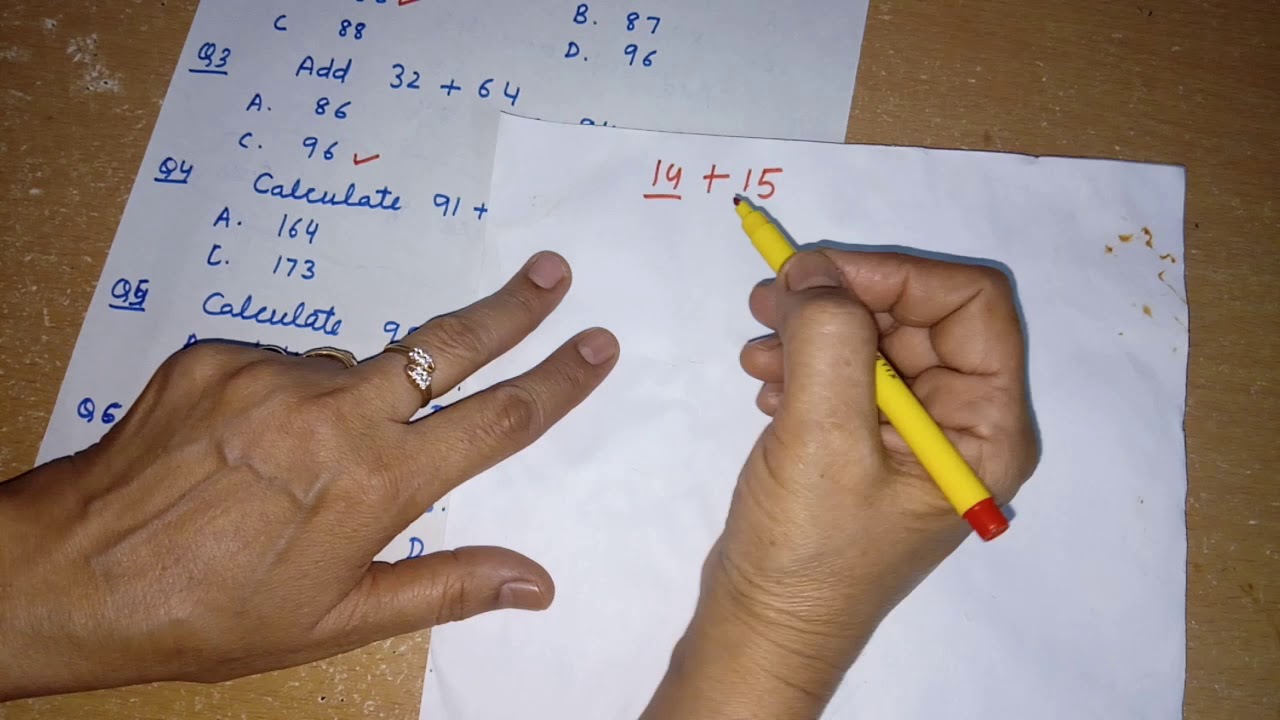 B. 87
C 88
D. 96
Q3 Add 32 + 64
A. 86
C. 96 ✓
Q4 Calculate 91 +
A. 164
C. 173
Q5 Calculate 9
Q6
D
14 + 15